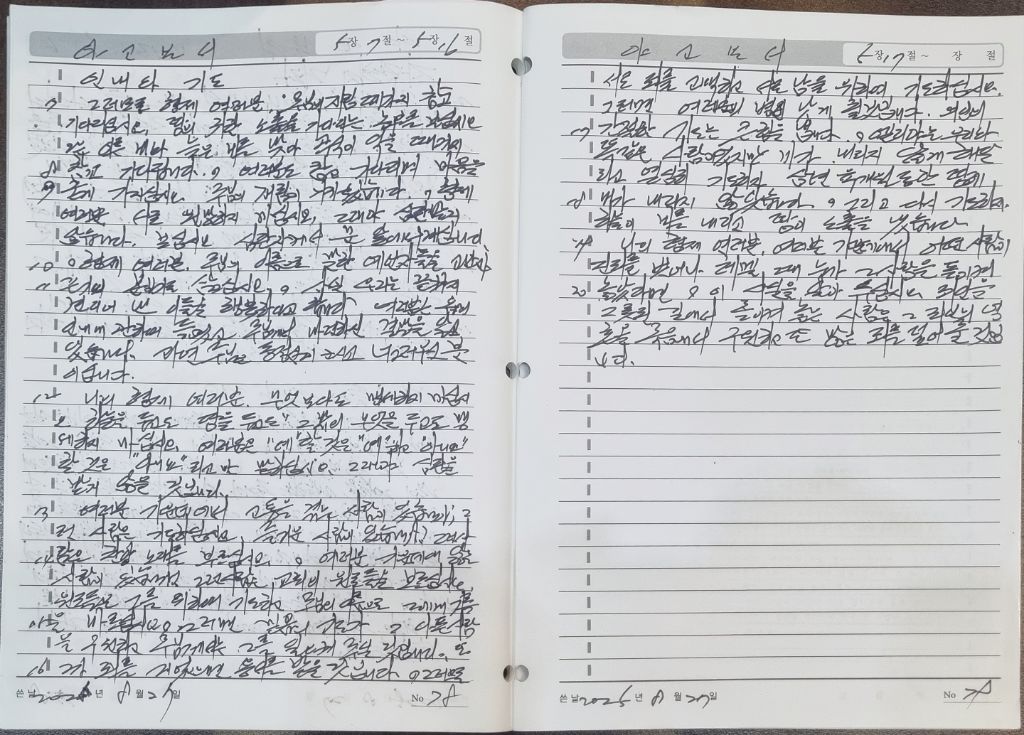 야고보서 5장 7절~5장 16절
인내와 기도
7 그러므로 형제 여러분, 주님께서 재림하실 때까지 참고
기다리십시오. 땅의 귀한 소출을 기다리는 농부를 보십시오
그는 이른 비와 늦은 비를 맞아 곡식이 익을 때까지
8 참고 기다립니다. 여러분도 참고 기다리며 마음을
9 굳게 가지십시오. 주님의 재림이 가까웠습니다. 형제
여러분 서로 원망하지 마십시오. 그래야 심판받지
않습니다. 보십시오 심판자께서 문 앞에 서 계십니다.
10 형제 여러분, 주님의 이름으로 말한 예언자들을
11 본보기로 삼으십시오.
견디어 낸 이들을 행복하다고 합니다. 여러분은 욥의
인내에 관하여 들었고 주님께서 마련하신 결말을 알고
있습니다. 과연 주님은 동정심이 크시고 너그러우신 분
이십니다.
12 나의 형제 여러분. 무엇보다도 맹세하지 마십시
오 하늘을 두고도 땅을 두고도 그 밖의 무엇을 두고도 맹
세하지 마십시오. 여러분은 "예" 할 것은 "예"하고 "아니요"
할 것은 "아니요"라고만 말하십시오. 그래야 심판을
받지 않을 것입니다.
13 여러분 가운데에서 고통을 겪는 사람이 있습니까? 그
런 사람은 기도하십시오. 즐거운 사람이 있습니까? 그런 사
14 람은 찬양 노래를 부르십시오. 여러분 가운데에 앓는
사람이 있습니까? 그런 사람은 교회의 원로들을 부르십시오.
원로들은 그를 위하여 기도하고 주님의 이름으로 그에게 기름
15 을 바르십시오. 그러면 믿음의 기도가 그 아픈 사람
을 구원하고 주님께서는 그를 일으켜 주실 것입니다. 또
16 그가 죄를 지었으면 용서를 받을 것입니다. 그러므로
쓴 날 2025년 8월 27일
No 78
야고보서 5장 17절~ 장 절
서로 죄를 고백하고 서로 남을 위하여 기도하십시오.
그러면 여러분의 병이 낫게 될 것입니다. 의인의
17 간절한 기도는 큰 힘을 냅니다. 엘리야는 우리와
똑같은 사람이었지만 비가 내리지 않게 해 달
라고 열심히 기도하자 삼 년 육 개월 동안 땅에
18 비가 내리지 않았습니다. 그리고 다시 기도하자,
하늘이 비를 내리고 땅이 소출을 냈습니다
19 나의 형제 여러분, 여러분 가운데에서 어떤 사람이
진리를 벗어나 헤맬 때 누가 그 사람을 돌이켜
20 놓았다면 이 사실을 알아 두십시오. 죄인을
그릇된 길에서 돌이켜 놓는 사람은 그 죄인의 영
혼을 죽음에서 구원하고 또 많은 죄를 덮어 줄 것입
니다.
쓴 날 2025년 8월 27일
No